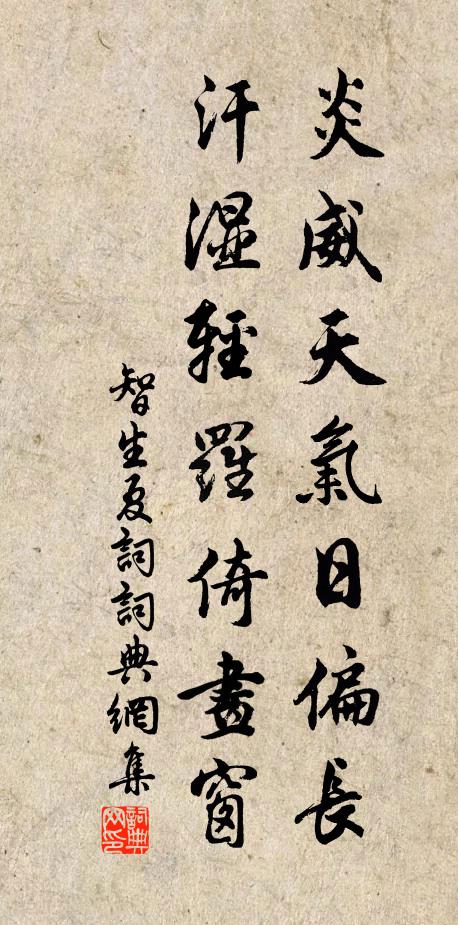 炎威天氣日偏長
汗濕輕羅倚畫窗
智生夏詞詞典網集
詞典
网印